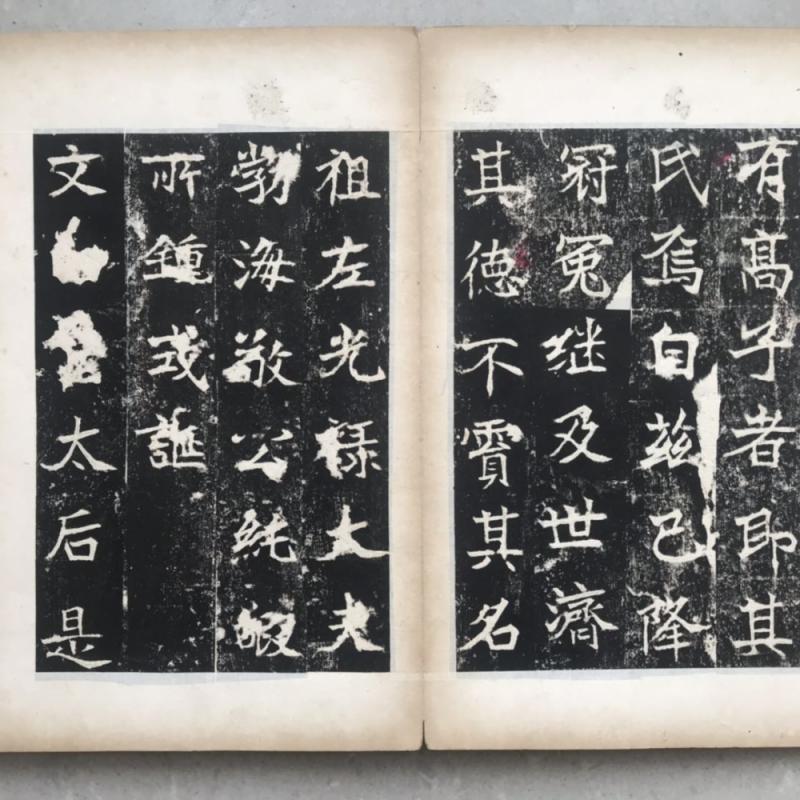 有髙子者即其
氏焉自兹已降
冠冕継及世濟
其徳不霣其名
祖左光禄大夫
勃海敬公純嘏
所鍾式誕
文太后是